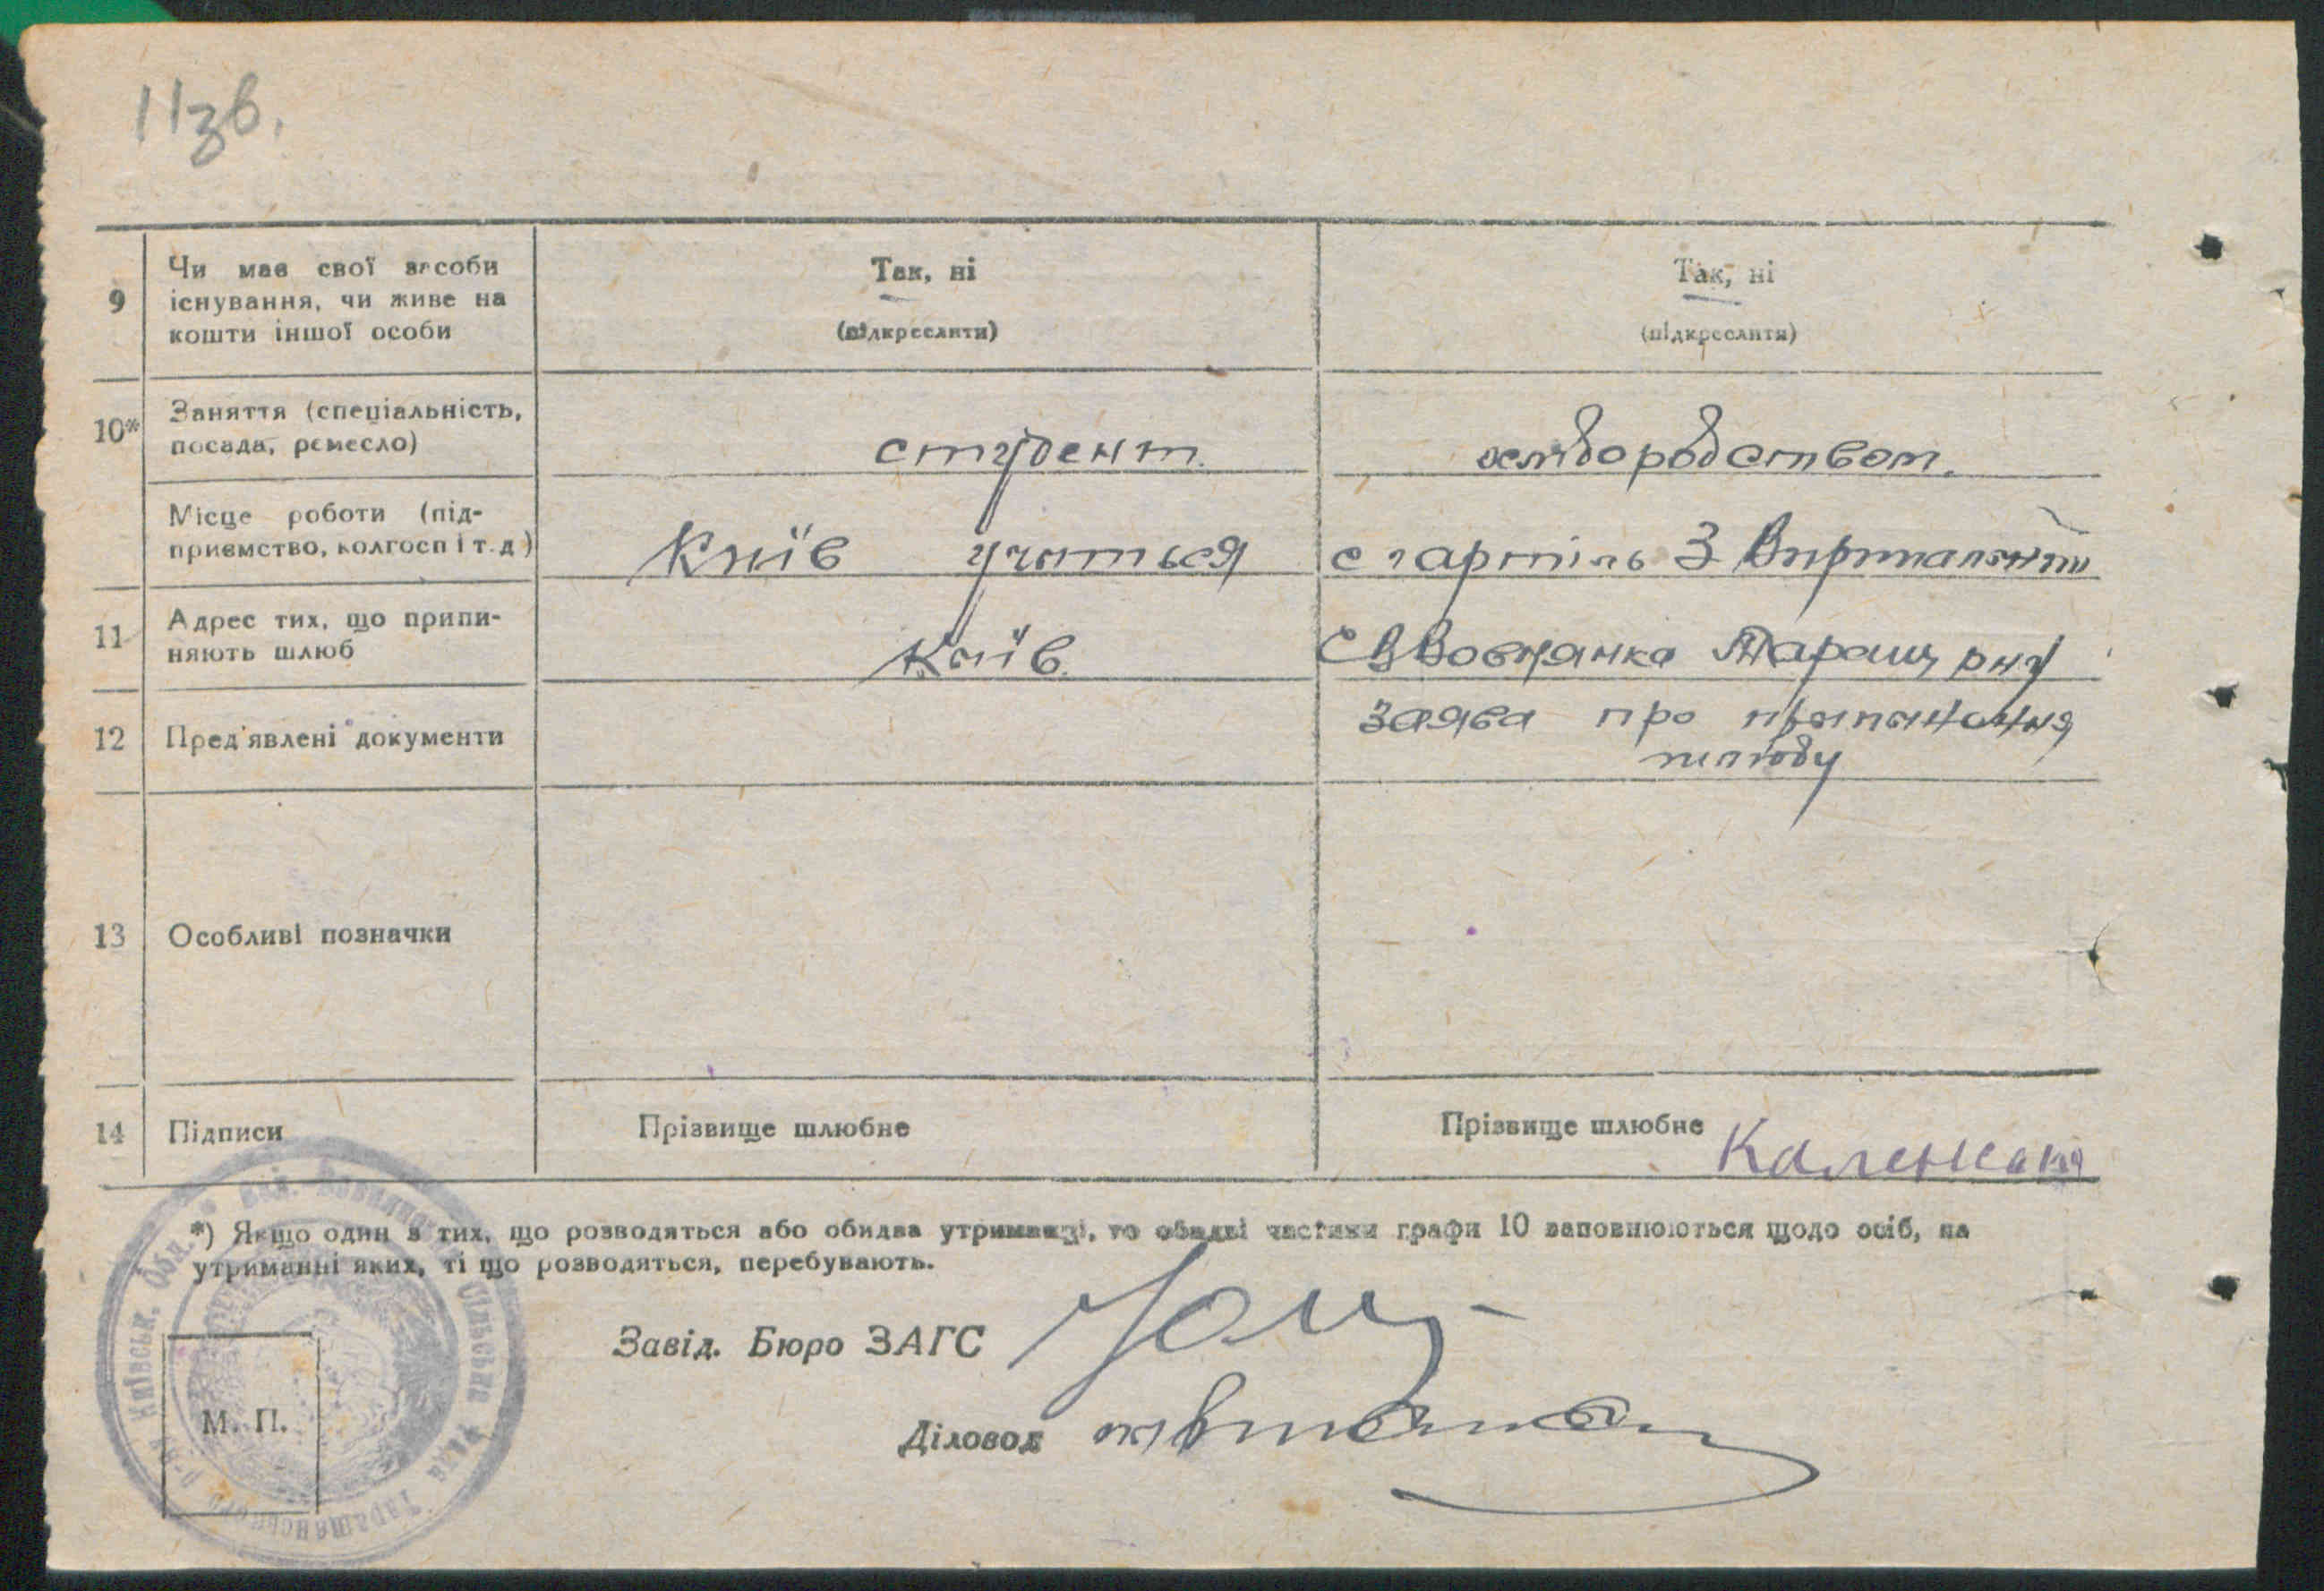 11зв.
9 Чи має свої засоби існування, чи живе на кошти іншої особи
Так, ні
(підкреслити)
Так, ні
(підкреслити)
10* Заняття (спеціальність, посада, ремесло)
студент.
хліборобством.
Місце роботи (підприємство, колгосп і т. д.)
Київ учиться
с г артіль З
11 Адрес тих, що припиняють шлюб
Київ.
с Вовнянка Таращ рну
12 Пред'явлені документи
заява про
шлюбу
13 Особливі позначки
14 Підписи
Прізвище шлюбне
Прізвище шлюбне
*) Якщо один з тих, що розводяться або обидва утриманці, то обидві частини графи 10 заповнюються щодо осіб, на
утриманні яких, ті що розводяться, перебувають.
Завід. Бюро ЗАГС
Діловод
М. П.
Київськ. Обл. Сільська Рада Таращанського р-на